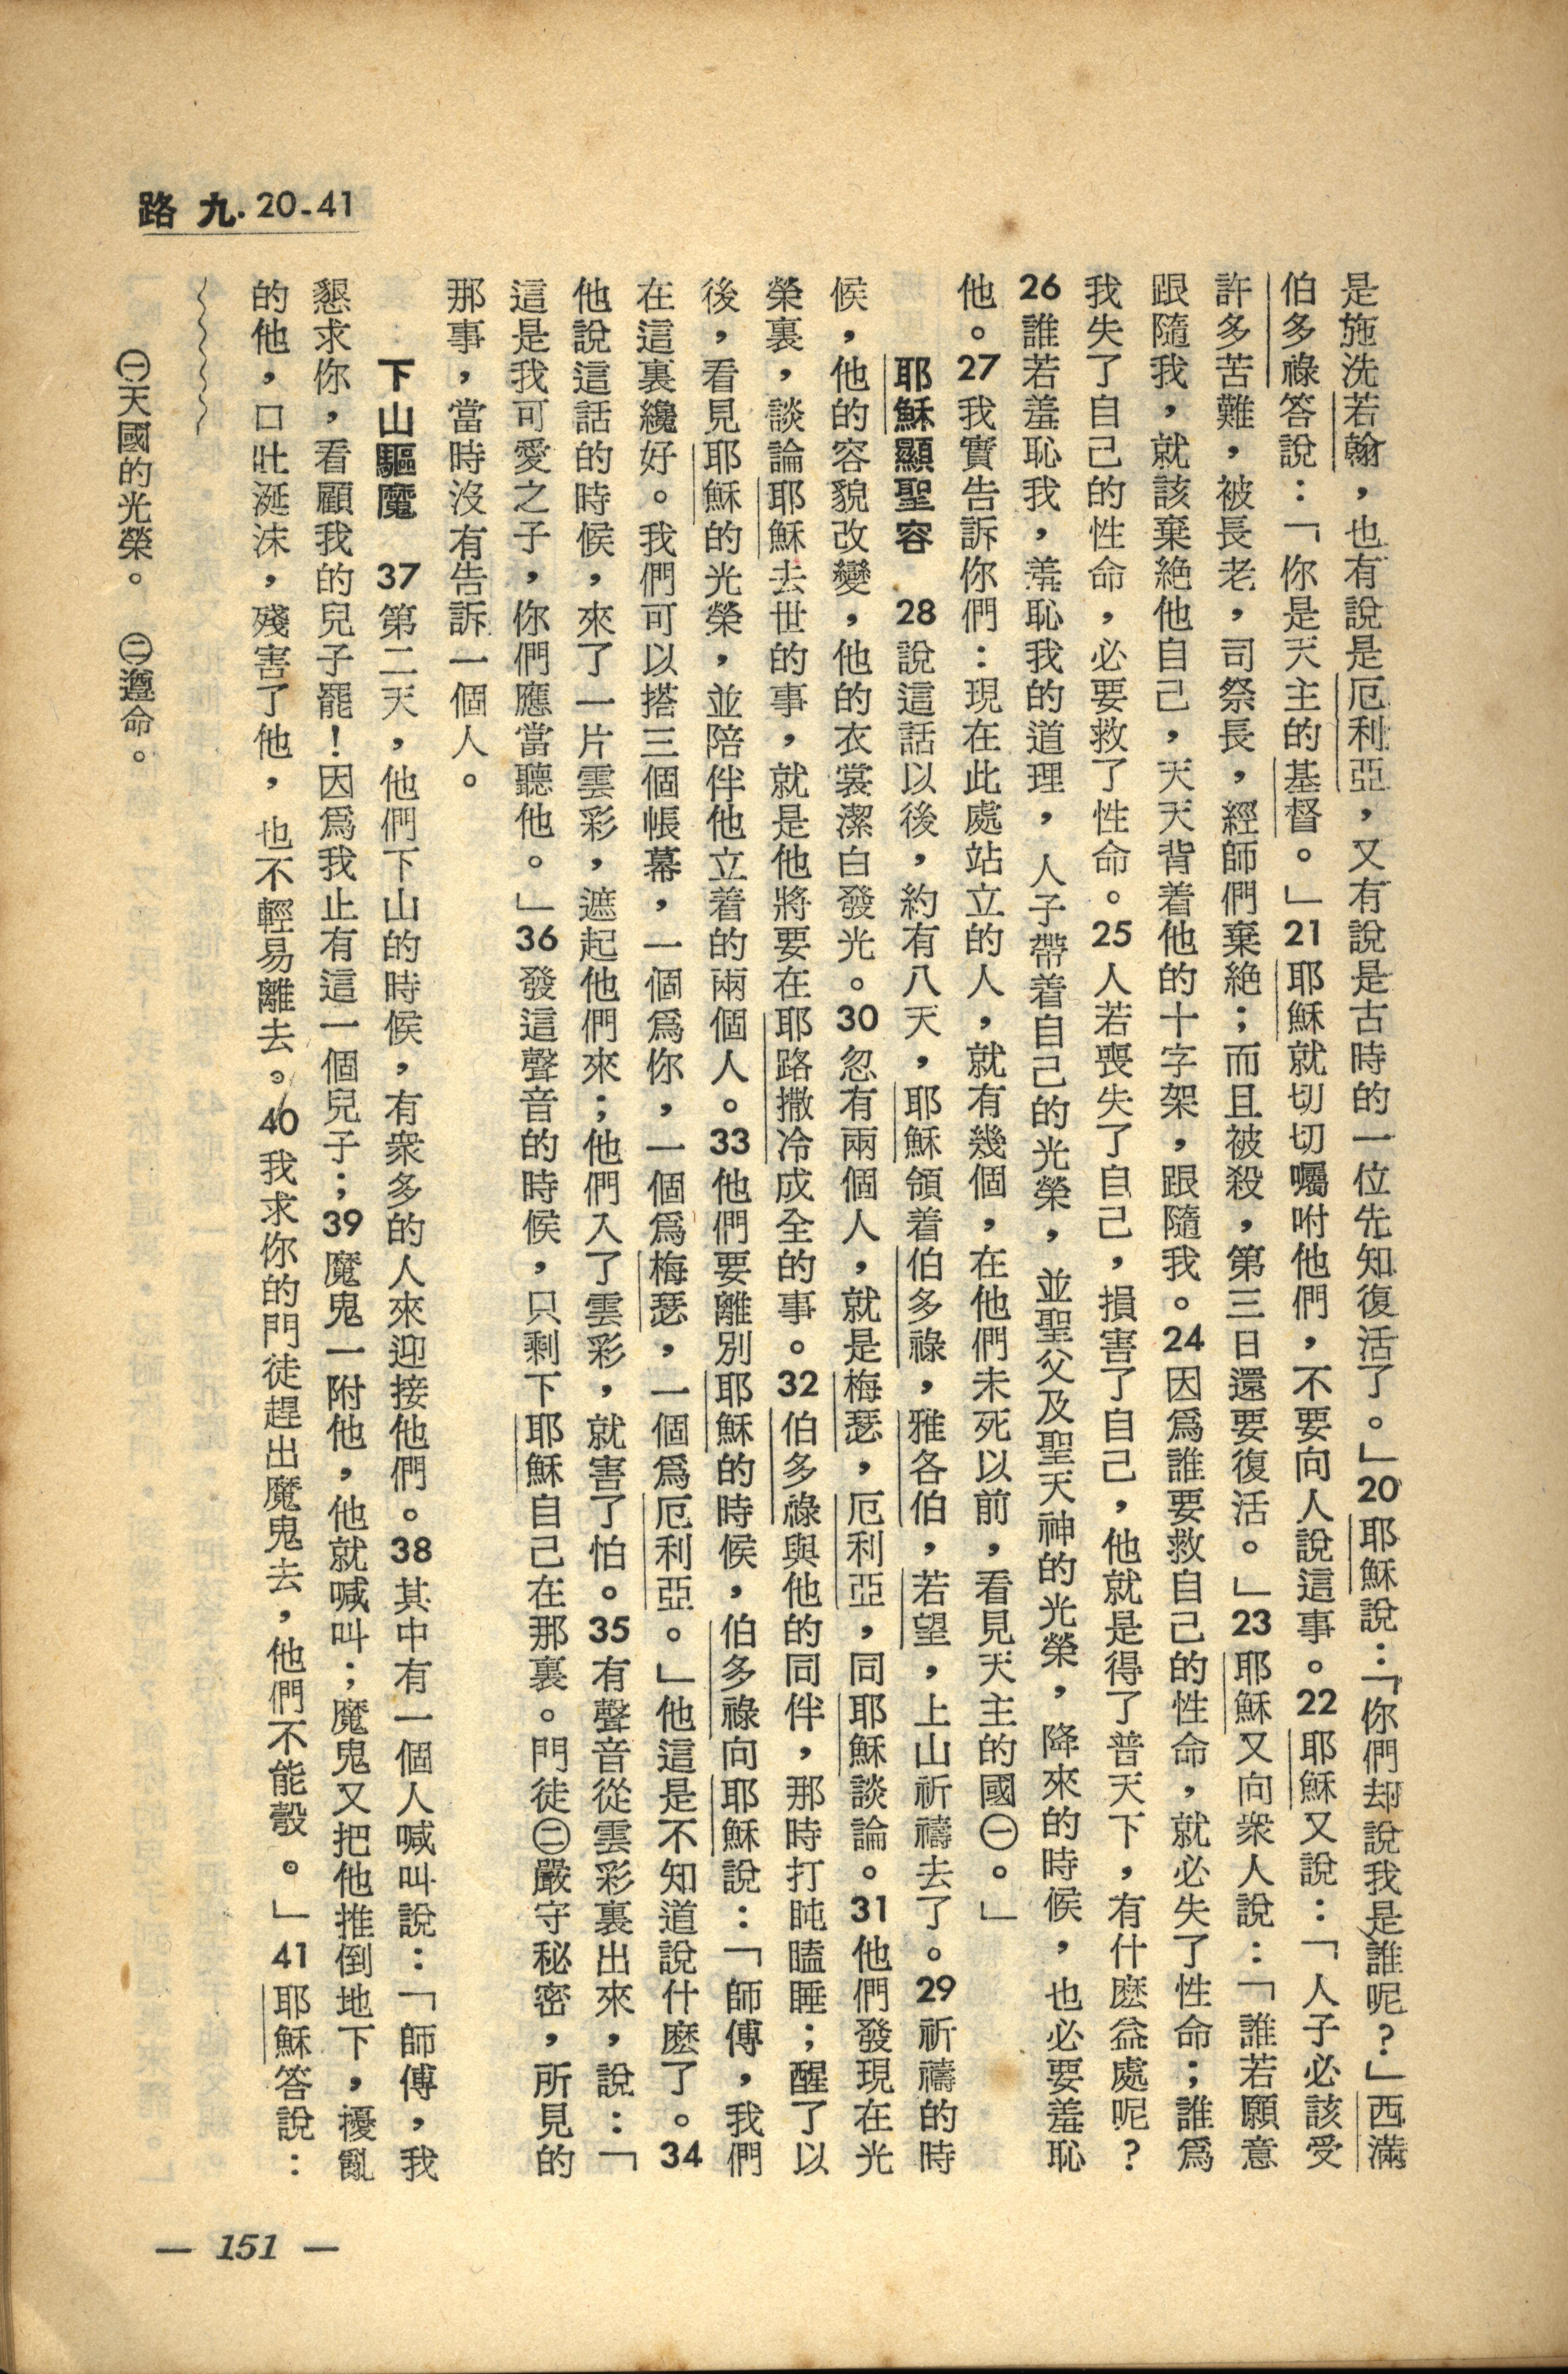 路九.20-41
是施洗若翰，也有說是厄利亞，又有說是古時的一位先知復活了。」20耶穌說：「你們却說我是誰呢？」西滿
伯多祿答說：「你是天主的基督。」21耶穌就切切囑咐他們，不要向人說這事。22耶穌又說：「人子必該受
許多苦難，被長老，司祭長，經師們棄絕；而且被殺，第三日還要復活。」23耶穌又向衆人說：「誰若願意
跟隨我，就該棄絕他自己，天天背着他的十字架，跟隨我。24因爲誰要救自己的性命，就必失了性命；誰爲
我失了自己的性命，必要救了性命。25人若喪失了自己，損害了自己，他就是得了普天下，有什麽益處呢？
26誰若羞恥我，羞恥我的道理，人子帶着自己的光榮，並聖父及聖天神的光榮，降來的時候，也必要羞恥
他。27我實告訴你們：現在此處站立的人，就有幾個，在他們未死以前，看見天主的國㊀。」
耶穌顯聖容　28說這話以後，約有八天，耶穌領着伯多祿，雅各伯，若望，上山祈禱去了。29祈禱的時
候，他的容貌改變，他的衣裳潔白發光。30忽有兩個人，就是梅瑟，厄利亞，同耶穌談論。31他們發現在光
榮裏，談論耶穌去世的事，就是他將要在耶路撒冷成全的事。32伯多祿與他的同伴，那時打盹瞌睡；醒了以
後，看見耶穌的光榮，並陪伴他立着的兩個人。33他們要離別耶穌的時候，伯多祿向耶穌說：「師傅，我們
在這裏纔好。我們可以搭三個帳幕，一個爲你，一個爲梅瑟，一個爲厄利亞。」他這是不知道說什麽了。34
他說這話的時候，來了一片雲彩，遮起他們來；他們入了雲彩，就害了怕。35有聲音從雲彩裏出來，說：「
這是我可愛之子，你們應當聽他。」36發這聲音的時候，只剩下耶穌自己在那裏。門徒㊁嚴守秘密，所見的
那事，當時沒有告訴一個人。
下山驅魔　37第二天，他們下山的時候，有衆多的人來迎接他們。38其中有一個人喊叫說：「師傅，我
懇求你，看顧我的兒子罷！因爲我止有這一個兒子；39魔鬼一附他，他就喊叫；魔鬼又把他推倒地下，擾亂
的他，口吐涎沫，殘害了他，也不輕易離去。40我求你的門徒趕出魔鬼去，他們不能彀。」41耶穌答說：
㊀天國的光榮。　㊁遵命。
— 151 —